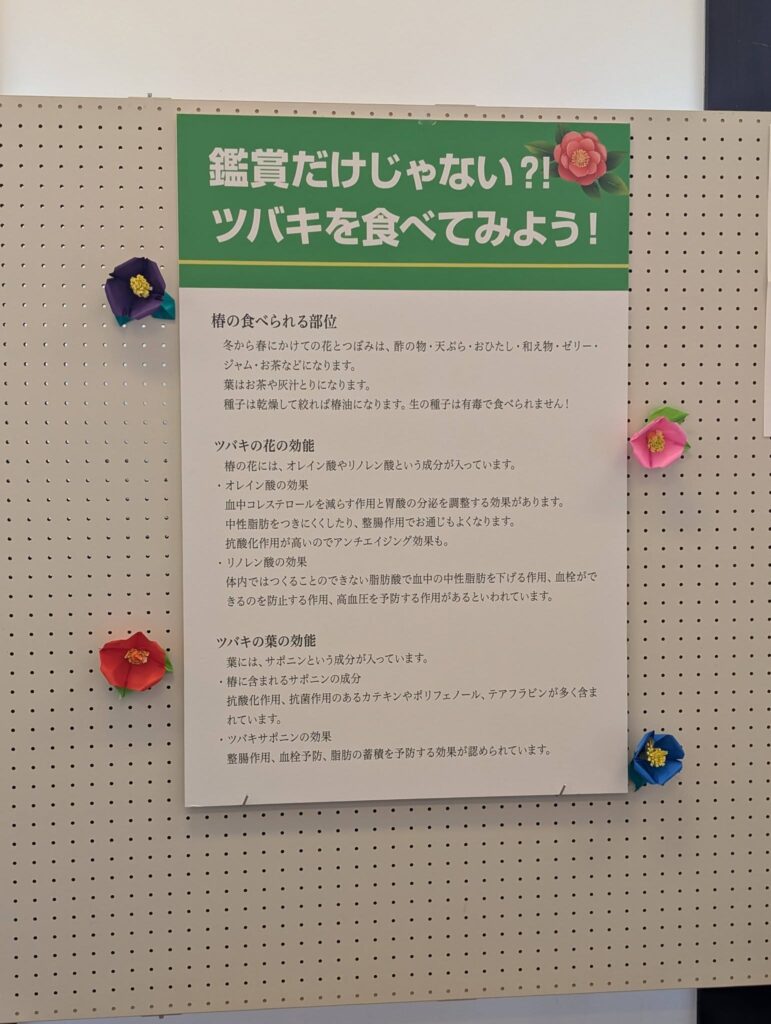 鑑賞だけじゃない?!
ツバキを食べてみよう!
椿の食べられる部位
冬から春にかけての花とつぼみは、酢の物・天ぷら・おひたし・和え物・ゼリー・
ジャム・お茶などになります。
葉はお茶や灰汁とりになります。
種子は乾燥して絞れば椿油になります。生の種子は有毒で食べられません!
ツバキの花の効能
椿の花には、オレイン酸やリノレン酸という成分が入っています。
・オレイン酸の効果
血中コレステロールを減らす作用と胃酸の分泌を調整する効果があります。
中性脂肪をつきにくくしたり、整腸作用でお通じもよくなります。
抗酸化作用が高いのでアンチエイジング効果も。
・リノレン酸の効果
体内ではつくることのできない脂肪酸で血中の中性脂肪を下げる作用、血栓がで
きるのを防止する作用、高血圧を予防する作用があるといわれています。
ツバキの葉の効能
葉には、サポニンという成分が入っています。
・椿に含まれるサポニンの成分
抗酸化作用、抗菌作用のあるカテキンやポリフェノール、テアフラビンが多く含ま
れています。
・ツバキサポニンの効果
整腸作用、血栓予防、脂肪の蓄積を予防する効果が認められています。